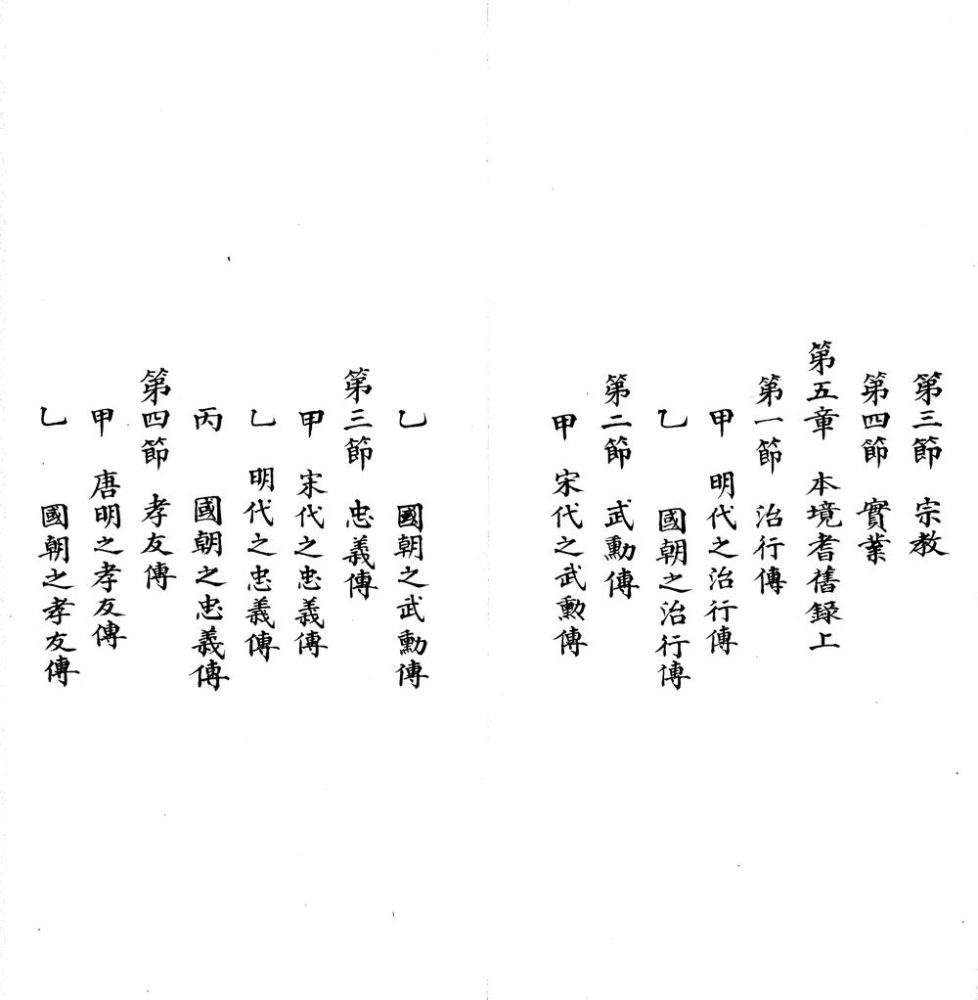 第三節　宗教
第四節　實業
第五章　本境耆舊録上
第一節　治行傳
甲　明代之治行傳
乙　國朝之治行傳
第二節　武勳傳
甲　宋代之武勳傳
乙　國朝之武勳傳
第三節　忠義傳
甲　宋代之忠義傳
乙　明代之忠義傳
丙　國朝之忠義傳
第四節　孝友傳
甲　唐明之孝友傳
乙　國朝之孝友傳